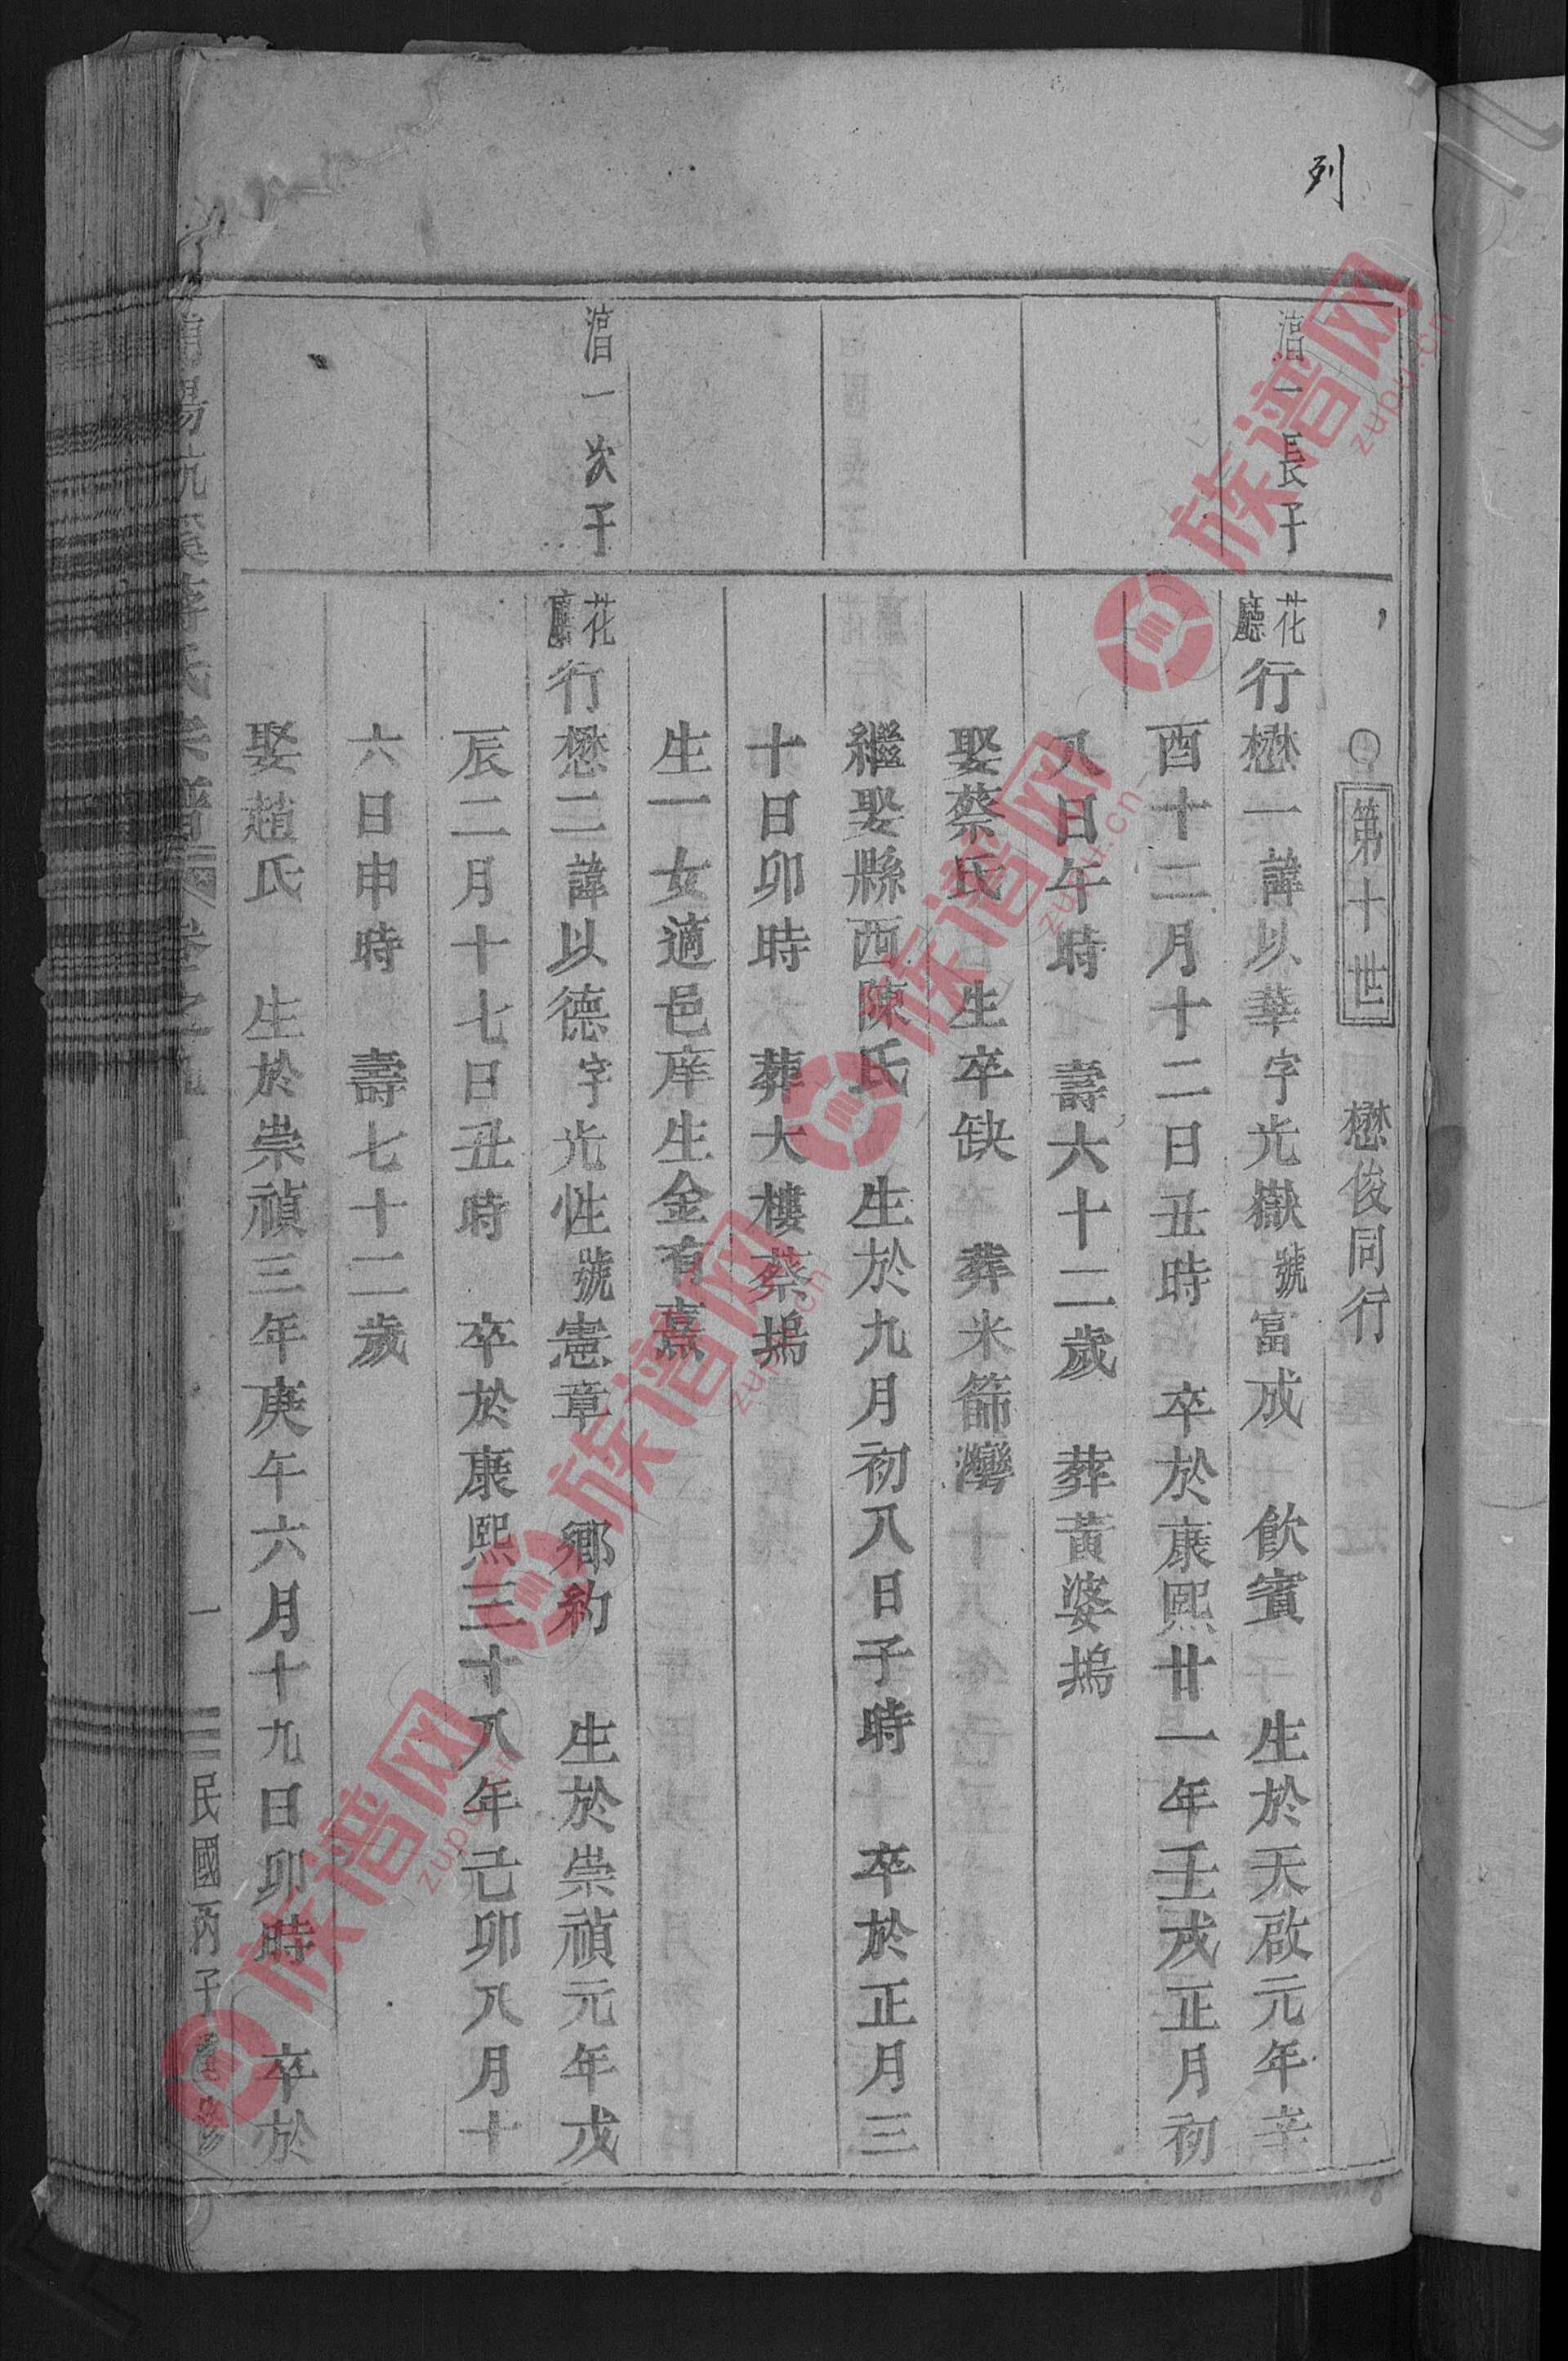 列
〇第十世 懋俊同行
一長子
花廳行懋一諱以華字光嶽號富成 飲賓 生於天啟元年辛
酉十二月十二日丑時 卒於康熙廿一年壬戌正月初
八日午時 壽六十二歲 葬黃婆塢
娶蔡氏 生卒缺 葬米篩灣
繼娶縣西陳氏 生於九月初八日子時 卒於正月三
十日卯時 葬大樓蔡塢
生一女適邑庠生金有熹
一次子
花廳行懋二諱以德字光性號憲章 鄉約 生於崇禎元年戊
辰二月十七日丑時 卒於康熙三十八年己卯八月十
六日申時 壽七十二歲
娶趙氏 生於崇禎三年庚午六月十九日卯時 卒於
氏宗譜 卷之九 一 民國丙子重修
族谱网 zupu.cn
族谱网 zupu.cn
族谱网 zupu.cn
族谱网 zupu.cn